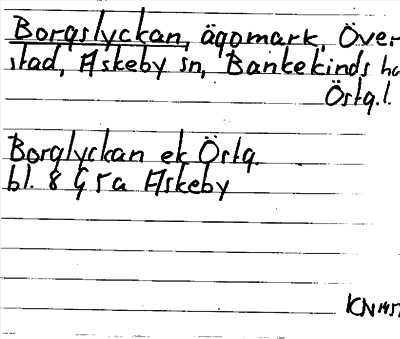 Borgslyckan, ägomark, Över-
stad, Askeby sn, Bankekinds h
Östg.l.
Borglyckan ek Östg.
bl. 8 G 5 a Askeby